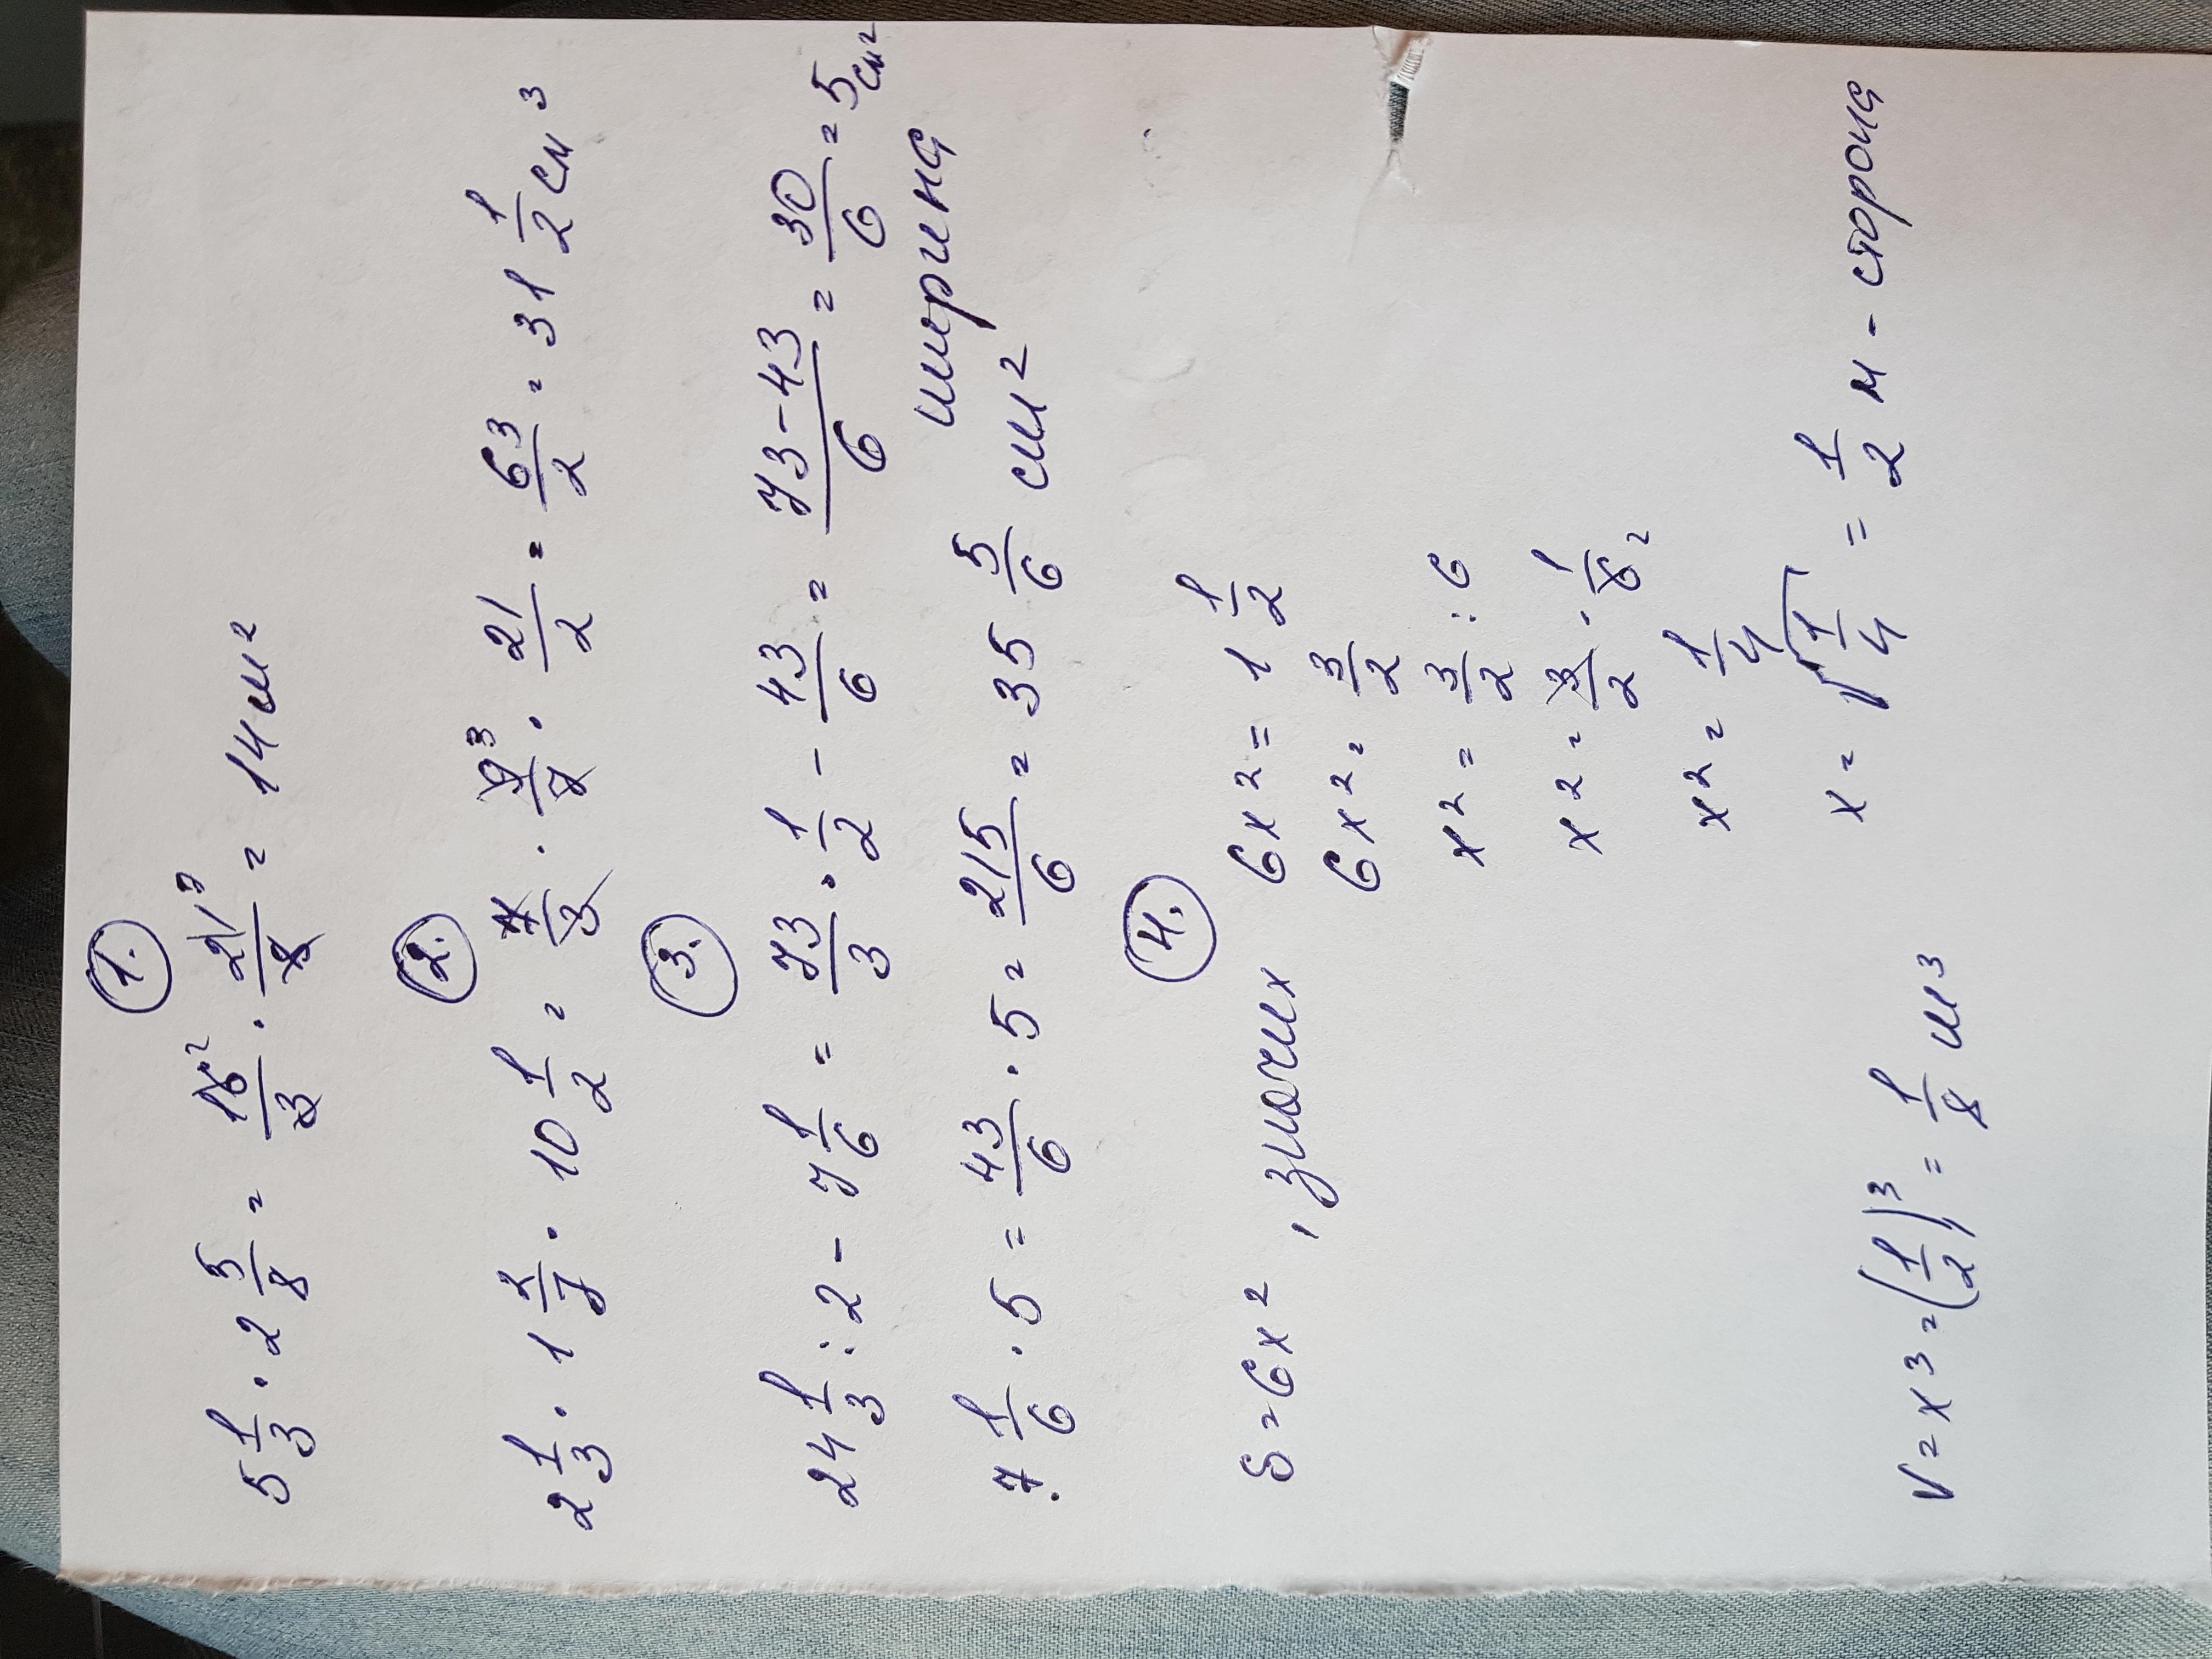 1.
5 1/3 · 2 5/8 = 16²/3 · 21⁷/8 = 14 см²
2.
2 1/3 · 1 2/7 · 10 1/2 = 7/3 · 9³/7 · 21/2 = 63/2 = 31 1/2 см³
3.
24 1/3 : 2 - 7 1/6 = 73/3 · 1/2 - 43/6 = 73-43/6 = 30/6 = 5 см²
ширина
7 1/6 · 5 = 43/6 · 5 = 215/6 = 35 5/6 см²
4.
S = 6x² , значит 6x² = 1 1/2
6x² = 3/2
x² = 3/2 : 6
x² = 3/2 · 1/6₂
x² = 1/4
x = √1/4 = 1/2 м - сторона
V = x³ = (1/2)³ = 1/8 м³